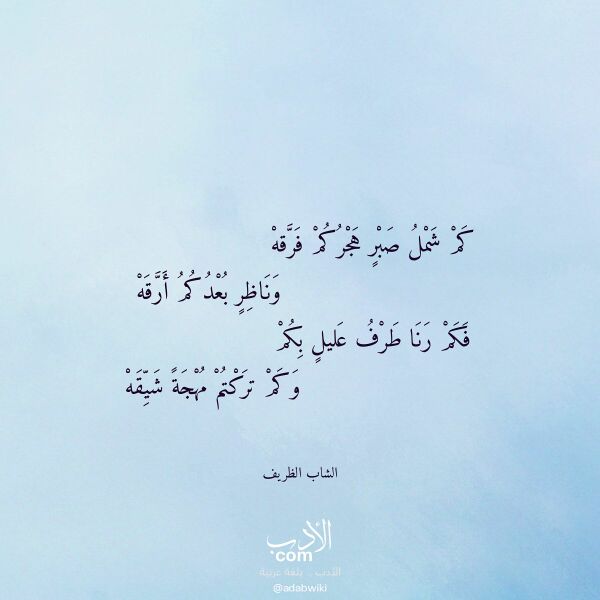 كَمْ شَمْلُ صَبْرٍ هَجْرُكُمْ فَرَّقهْ
وَنَاظِرٍ بُعْدُكُمُ أَرَّقَهْ
فَكَمْ رَنَا طَرْفُ عَليلٍ بِكُمْ
وَكَمْ تَرَكْتُمْ مُهْجَةً شَيِّقَهْ
الشاب الظريف
الأدب
com
الأدب .. بلغة عربية
@adabwiki